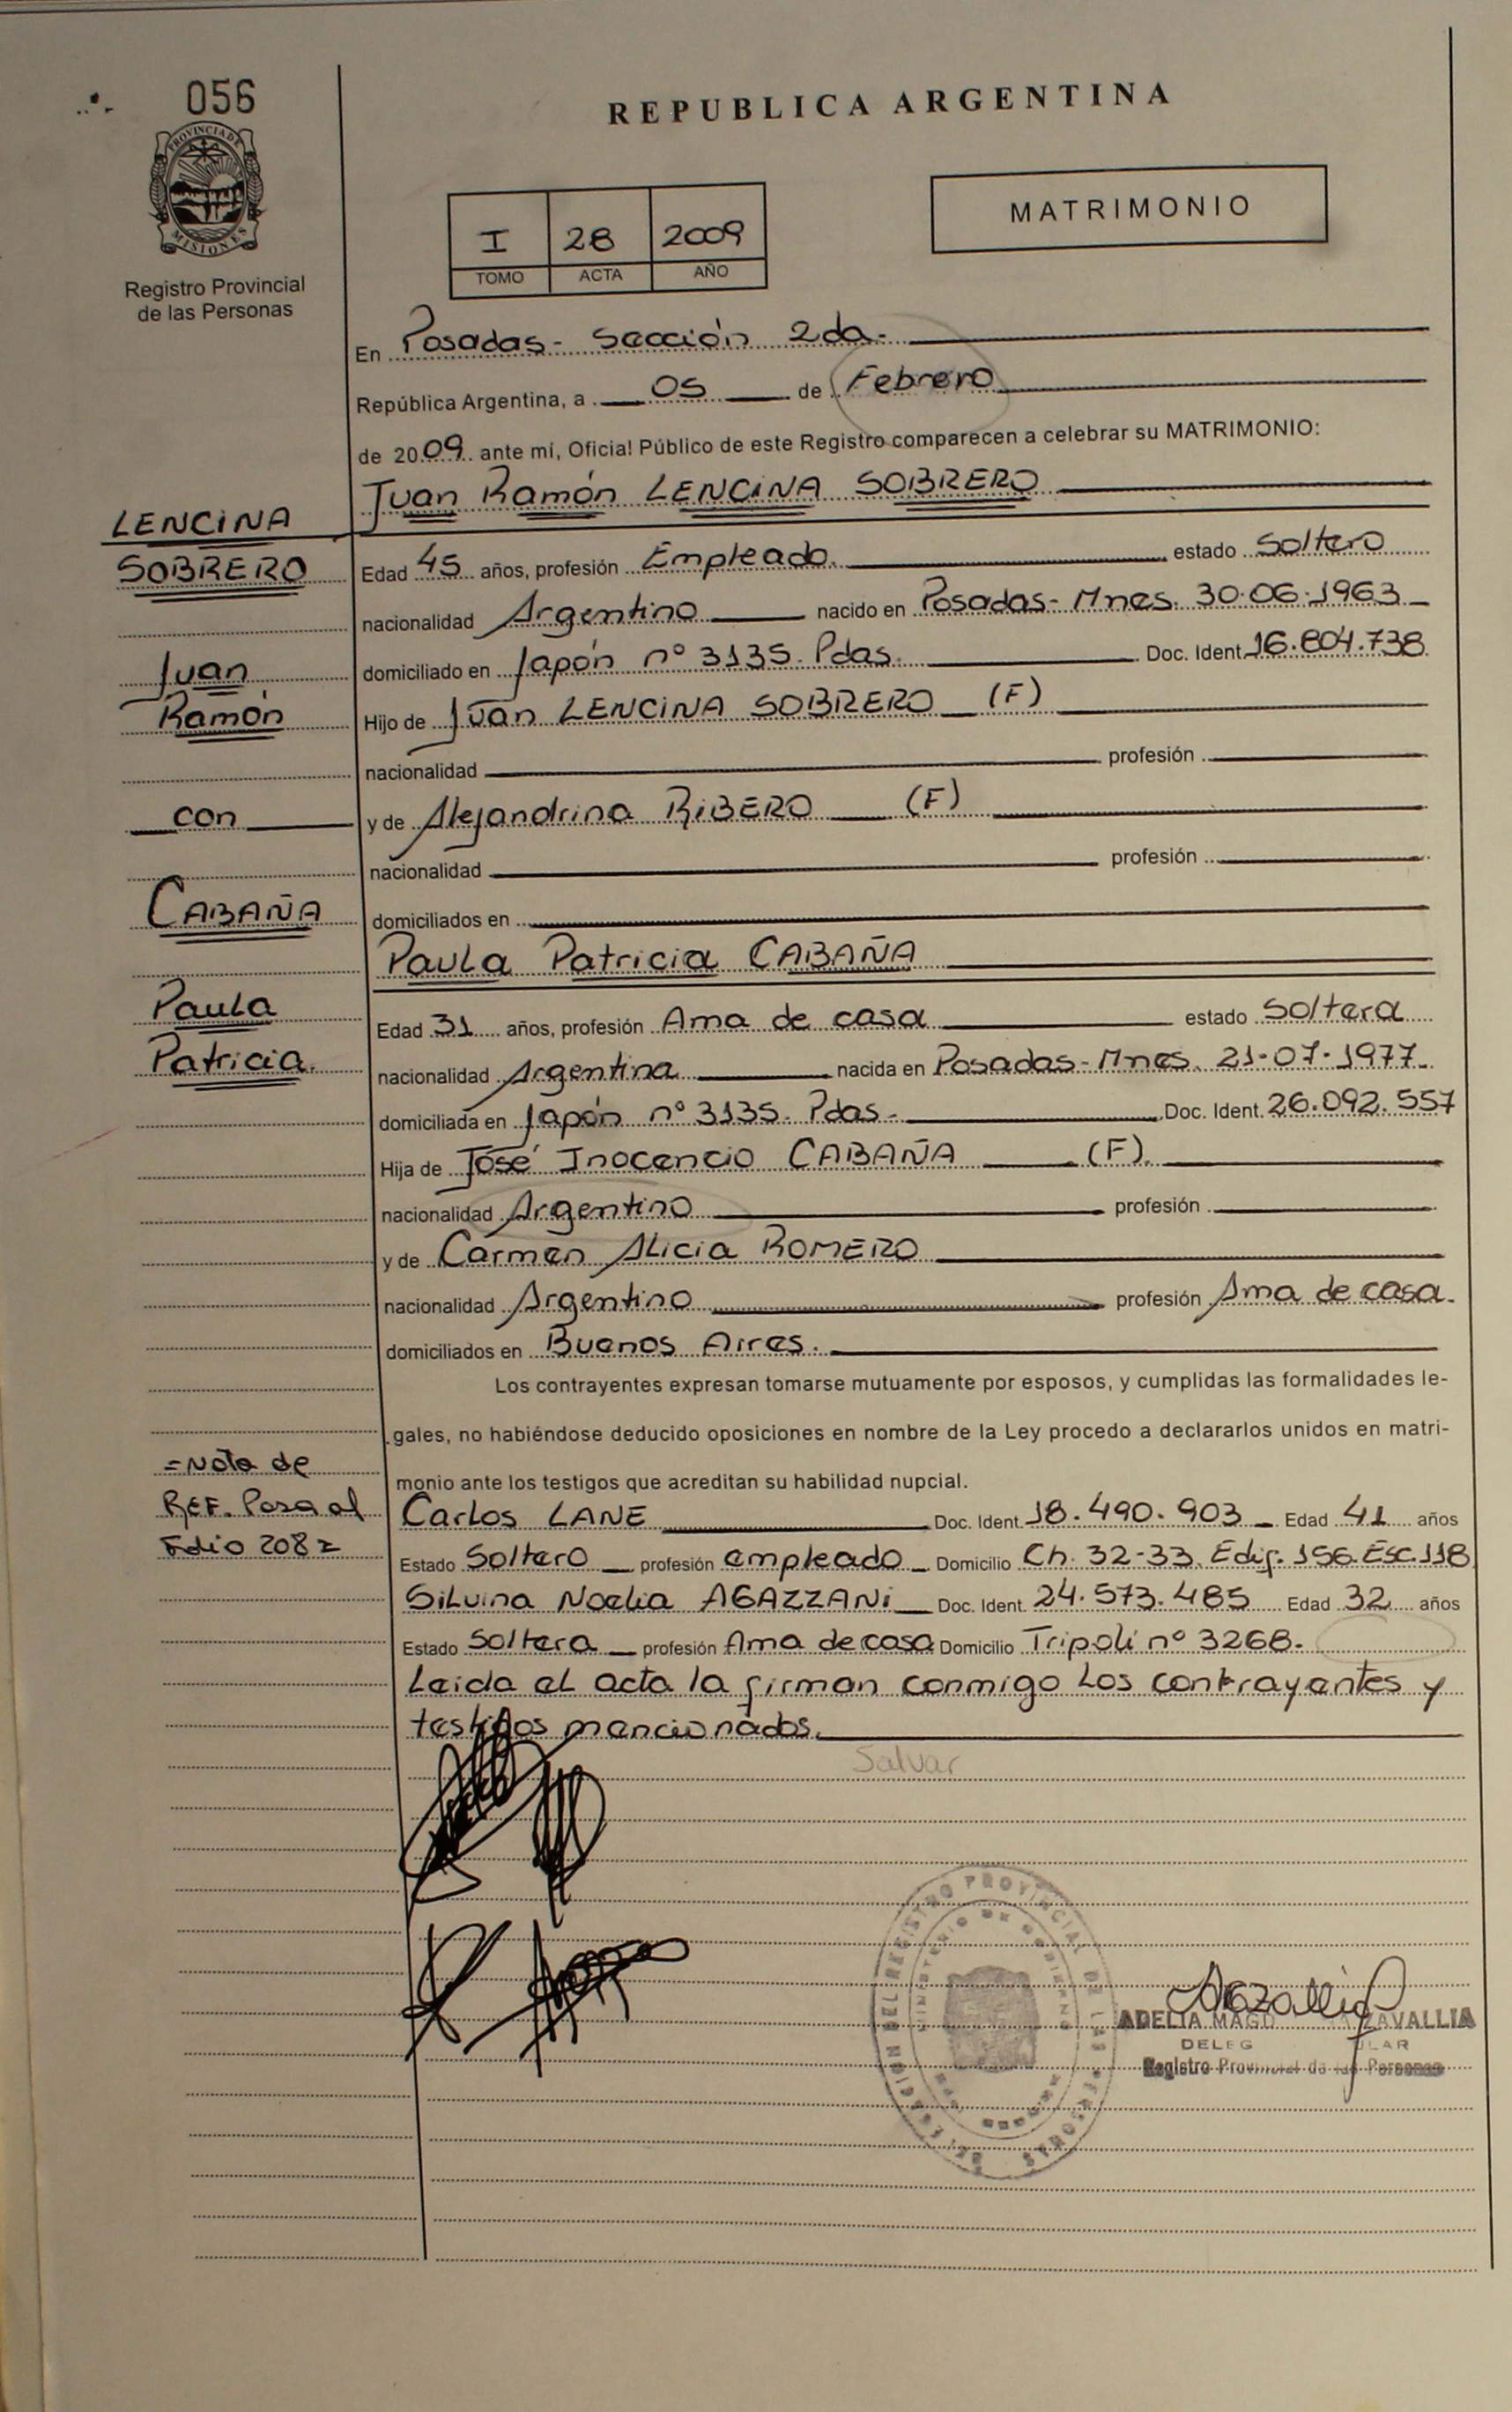 056
PROVINCIA DE
MISIONES
Registro Provincial
de las Personas
REPUBLICA ARGENTINA
I 28 2009
TOMO ACTA AÑO
MATRIMONIO
En Posadas- Sección 2da.
República Argentina, a 05 de Febrero
de 2009 ante mí, Oficial Público de este Registro comparecen a celebrar su MATRIMONIO:
Juan Ramón LENCINA SOBRERO
LENCINA
SOBRERO
Juan
Ramón
con
CABAÑA
Paula
Patricia.
Edad 45 años, profesión Empleado. estado Soltero
nacionalidad Argentino nacido en Posadas- Mnes. 30.06.1963
domiciliado en Japón nº 3135. Pdas. Doc. Ident. 16.804.738
Hijo de Juan LENCINA SOBRERO (F)
nacionalidad profesión
y de Alejandrina RIBERO (F)
nacionalidad profesión
domiciliados en
Paula Patricia CABAÑA
Edad 31 años, profesión Ama de casa estado Soltera
nacionalidad Argentina nacida en Posadas-Mnes. 21-07-1977
domiciliada en Japón nº 3135. Pdas. Doc. Ident. 26.092.557
Hija de José Inocencio CABAÑA (F).
nacionalidad Argentino profesión
y de Carmen Alicia ROMERO
nacionalidad Argentino profesión Ama de casa.
domiciliados en Buenos Aires.
Los contrayentes expresan tomarse mutuamente por esposos, y cumplidas las formalidades le-
gales, no habiéndose deducido oposiciones en nombre de la Ley procedo a declararlos unidos en matri-
monio ante los testigos que acreditan su habilidad nupcial.
=Nota de
REF. Pasa al
Folio 208=
Carlos LANE Doc. Ident. 18.490.903 Edad 41 años
Estado Soltero profesión empleado Domicilio Ch. 32-33. Edif. 156. Esc. 118
Silvina Noelia AGAZZANI Doc. Ident. 24.573.485 Edad 32 años
Estado Soltera profesión Ama de casa Domicilio Tripoli nº 3268.
Leida el acta la firman conmigo los contrayentes y
testigos mencionados.
Salvar
REGISTRO PROVINCIAL DE LAS PERSONAS
ADELIA MAGD ZAVALLIA
DELEG ULAR
Registro Provincial de las Personas